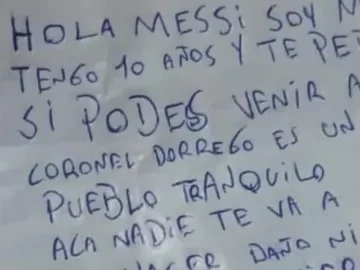 HOLA MESSI SOY
TENGO 10 AÑOS Y TE
SI PODES VENIR A
CORONEL DORREGO ES UN
PUEBLO TRANQUILO
ACA NADIE TE VA A
DAÑO NI